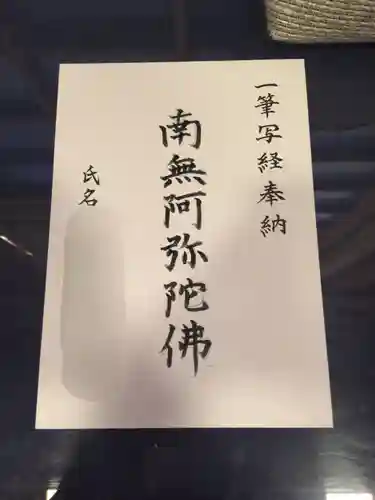 一筆写経奉納
南無阿弥陀佛
氏名